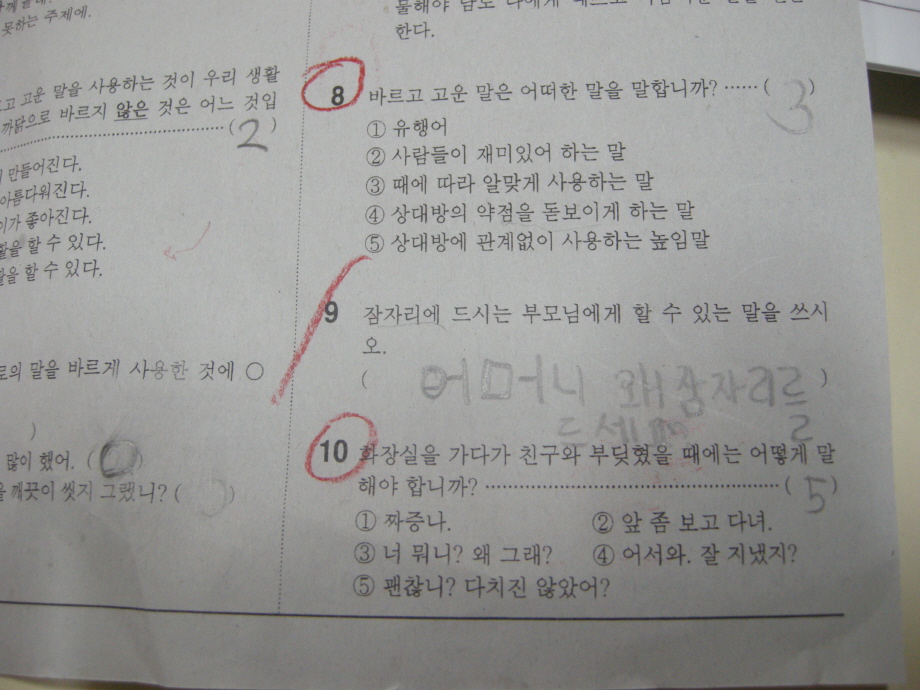 못하는 주제에.
고 고운 말을 사용하는 것이 우리 생활
까닭으로 바르지 않은 것은 어느 것입
(2)
만들어진다.
아름다워진다.
가 좋아진다.
할 수 있다.
할 수 있다.
말을 바르게 사용한 것에 ○
)
많이 했어. (○)
깨끗이 씻지 그랬니? ( )
한다.
8 바르고 고운 말은 어떠한 말을 말합니까? …… (3)
① 유행어
② 사람들이 재미있어 하는 말
③ 때에 따라 알맞게 사용하는 말
④ 상대방의 약점을 돋보이게 하는 말
⑤ 상대방에 관계없이 사용하는 높임말
9 잠자리에 드시는 부모님에게 할 수 있는 말을 쓰시
오.
( 어머니 왜 잠자리를 )
드세요
10 화장실을 가다가 친구와 부딪혔을 때에는 어떻게 말
해야 합니까? …… (5)
① 짜증나. ② 앞 좀 보고 다녀.
③ 너 뭐니? 왜 그래? ④ 어서와. 잘 지냈지?
⑤ 괜찮니? 다치진 않았어?